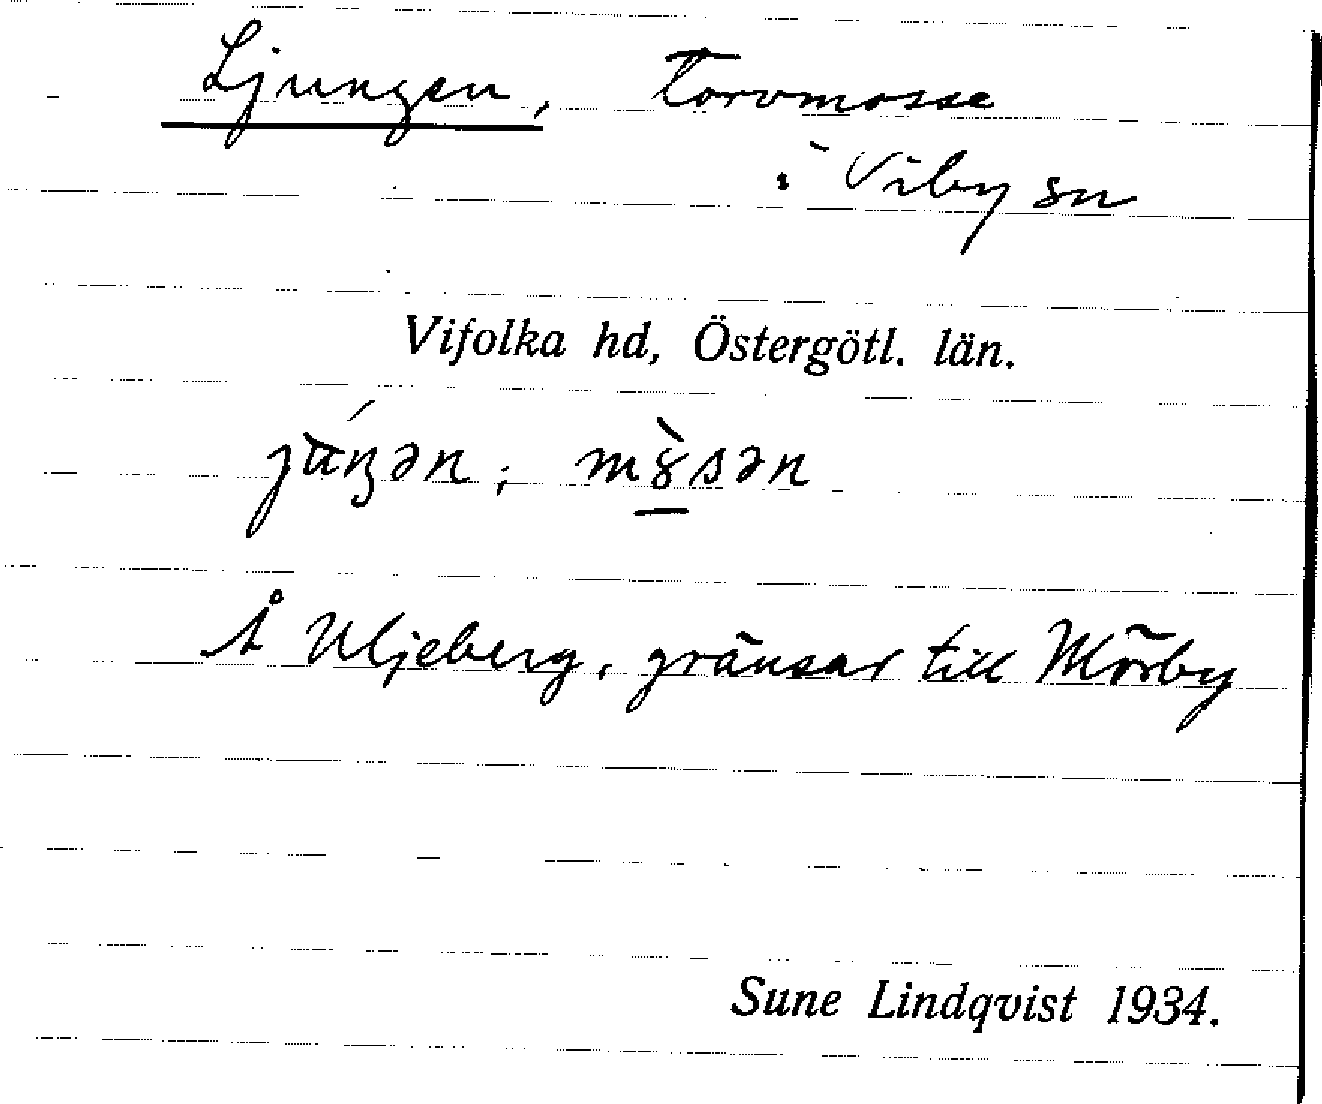 Ljungen, Torvmosse
i Viby sn
Vifolka hd, Östergötl. län.
Å Uljeberg, gränsar till Mörby
Sune Lindqvist 1934.